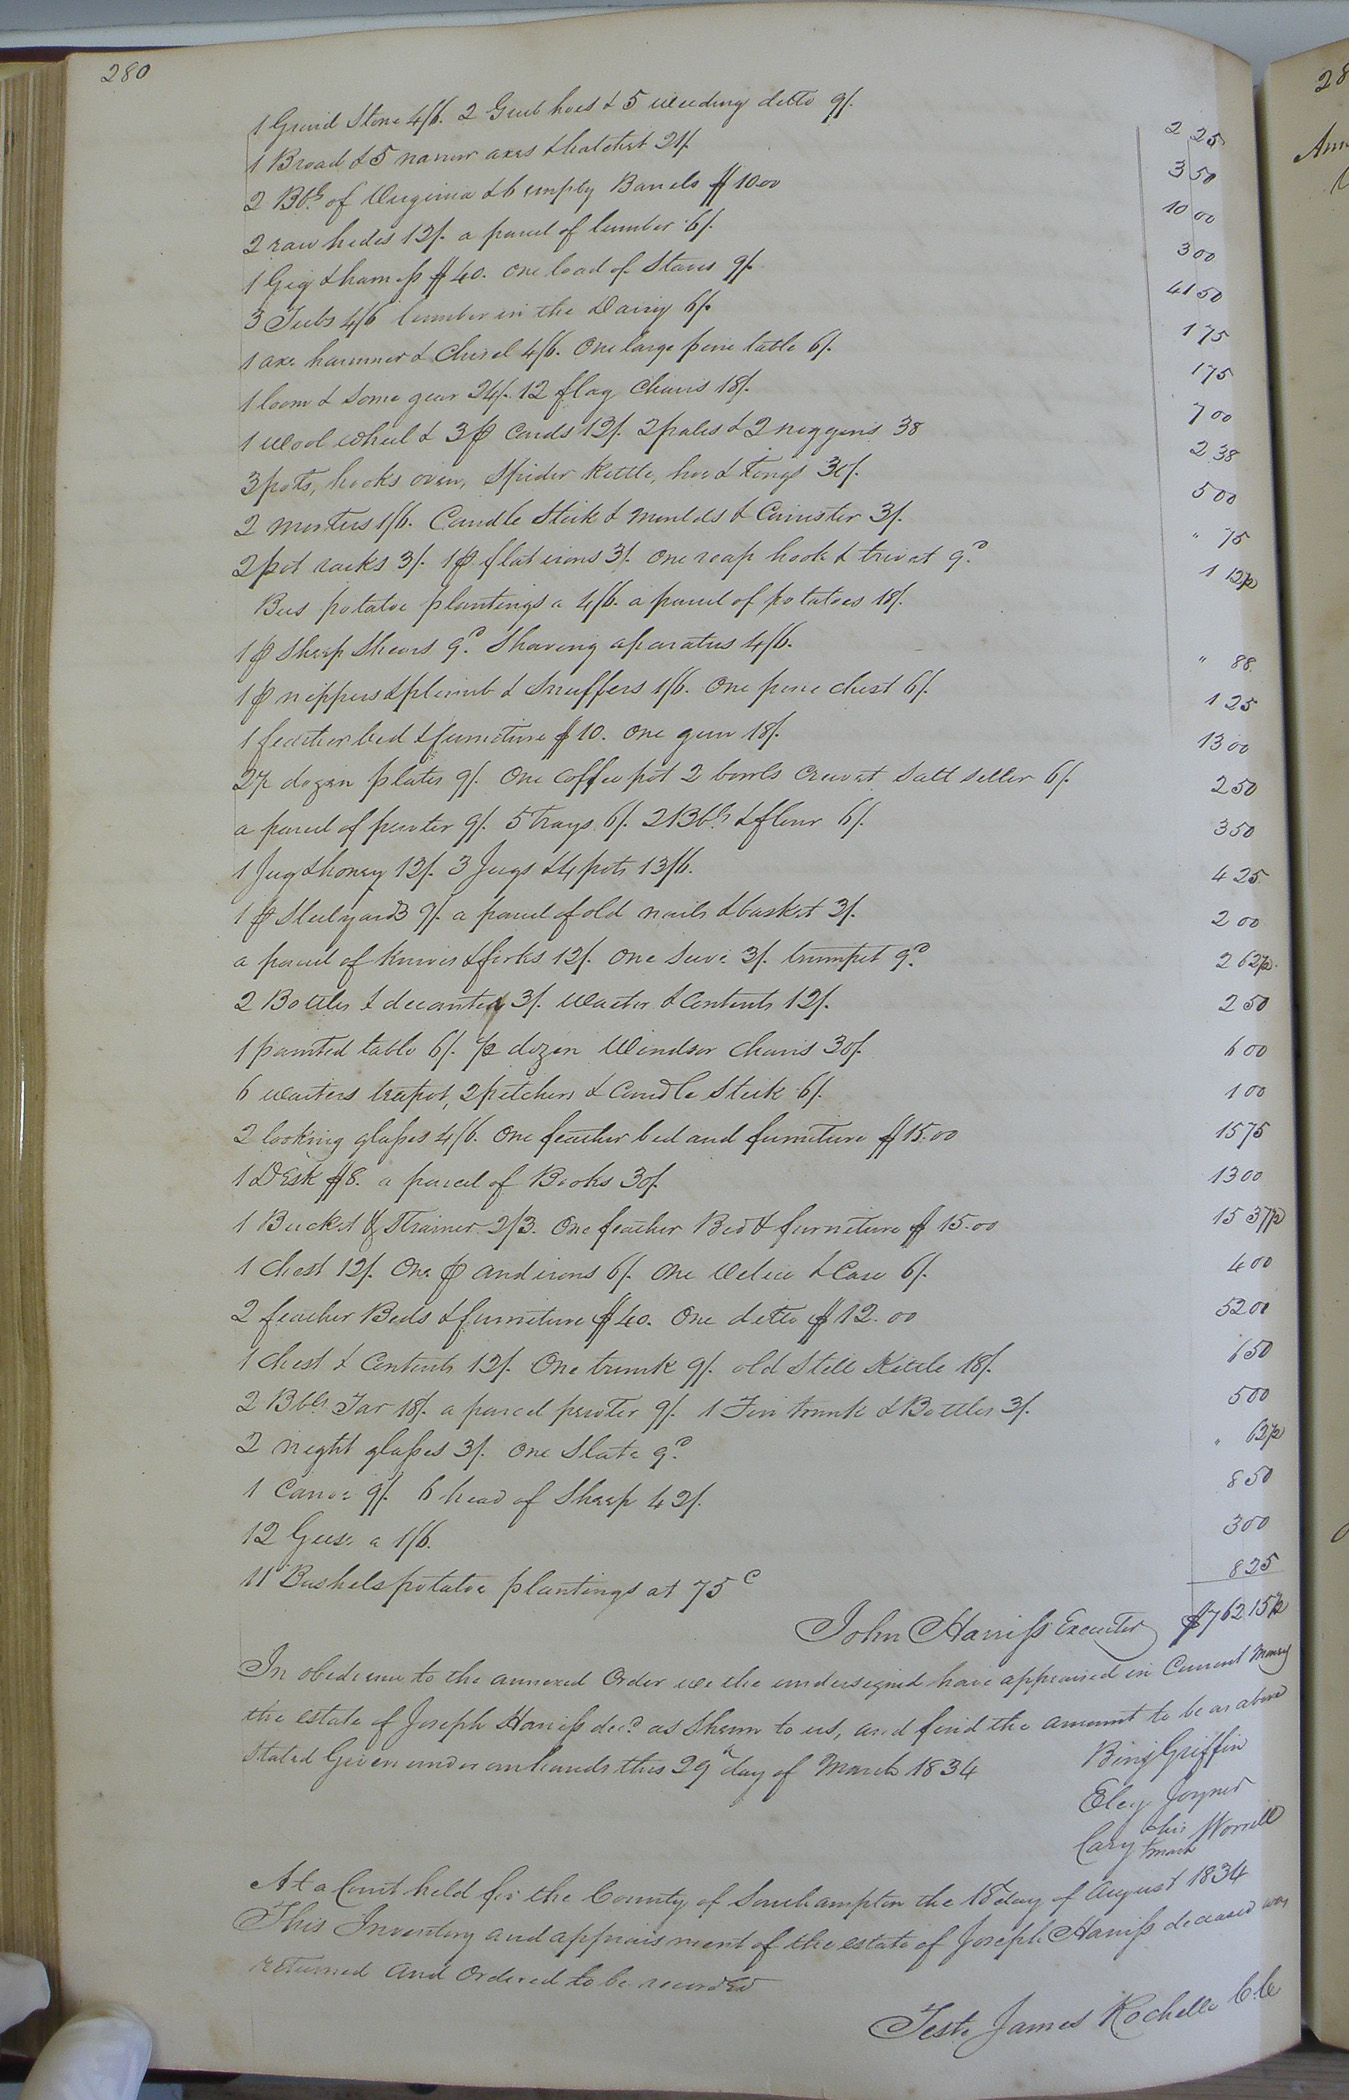 280
28
1 Grind Stone 4/6. 2 Grub hoes & 5 weeding ditto 9/. 2 25
1 Broad & 5 narrow axes & hatchet 21/. 3 50
2 Bbls of Virginia & 6 empty Barrels $10.00 10 00
2 raw hides 12/. a parcel of lumber 6/. 3 00
1 Gig & harness $40. One load of Staves 9/. 41 50
3 Tubs 4/6 lumber in the Dairy 6/. 1 75
1 axe hammer & Chisel 4/6. One large pine table 6/. 1 75
1 loom & some gear 24/. 12 flag Chairs 18/. 7 00
1 wool wheel & 3 p Cards 12/. 2 pales & 2 noggins 38 2 38
3 pots, hooks oven, Spider kettle, hoe & Tongs 30/. 5 00
2 morters 1/6. Candle Stick & moulds & Cannister 3/. " 75
2 pot racks 3/. 1 p flat irons 3/. One reap hook & trivat 9d. 1 12½
Bus potatoe plantings a 4/6. a parcel of potatoes 18/.
1 p Sheep Shears 9d. Shaving aparatus 4/6. " 88
1 p nippers & plumb & Snuffers 1/6. One pine chest 6/. 1 25
1 feather bed & furniture $10. One gun 18/. 13 00
2½ dozen plates 9/. One coffee pot 2 bowls cruvat salt seller 6/. 2 50
a parcel of pewter 9/. 5 trays 6/. 2 Bbls & flour 6/. 3 50
1 Jug & honey 12/. 3 Jugs & 4 pots 13/6. 4 25
1 p Steelyards 9/. a parcel of old nails & basket 3/. 2 00
a parcel of knives & forks 12/. One Seive 3/. trumpet 9d. 2 62½
2 Bottles & decanter 3/. waiter & Contents 12/. 2 50
1 painted table 6/. ½ dozen Windsor chairs 30/. 6 00
6 waiters teapot, 2 pitchers & Candle Stick 6/. 1 00
2 looking glasses 4/6. One feather bed and furniture $15.00 15 75
1 Desk $8. a parcel of Books 30/. 13 00
1 Bucket & Strainer 2/3. One feather Bed & furniture $15.00 15 37½
1 Chest 12/. One p andirons 6/. One & Case 6/. 4 00
2 feather Beds & furniture $40. One ditto $12.00 52 00
1 chest & Contents 12/. One trunk 9/. old Still Kettle 18/. 6 50
2 Bbls Tar 18/. a parcel pewter 9/. 1 Tin trunk & Bottles 3/. 5 00
2 night glasses 3/. One Slate 9d. " 62½
1 Canoe 9/. 6 head of Sheep 42/. 8 50
12 Geese a 1/6. 3 00
11 Bushels potatoe plantings at 75c 8 25
John Harriss Executor $762 15½
In obedience to the annexed Order we the undersigned have appraised in Current Money
the estate of Joseph Harriss decd. as shewn to us, and find the amount to be as above
Stated Given under our hands this 29th day of March 1834
Binj Griffin
Eley Joyner
Cary his mark Worrell
At a Court held for the County of Southampton the 18 day of August 1834
This Inventory and appraisment of the estate of Joseph Harriss deceased was
returned and Ordered to be recorded
Teste James Rochelle C.C